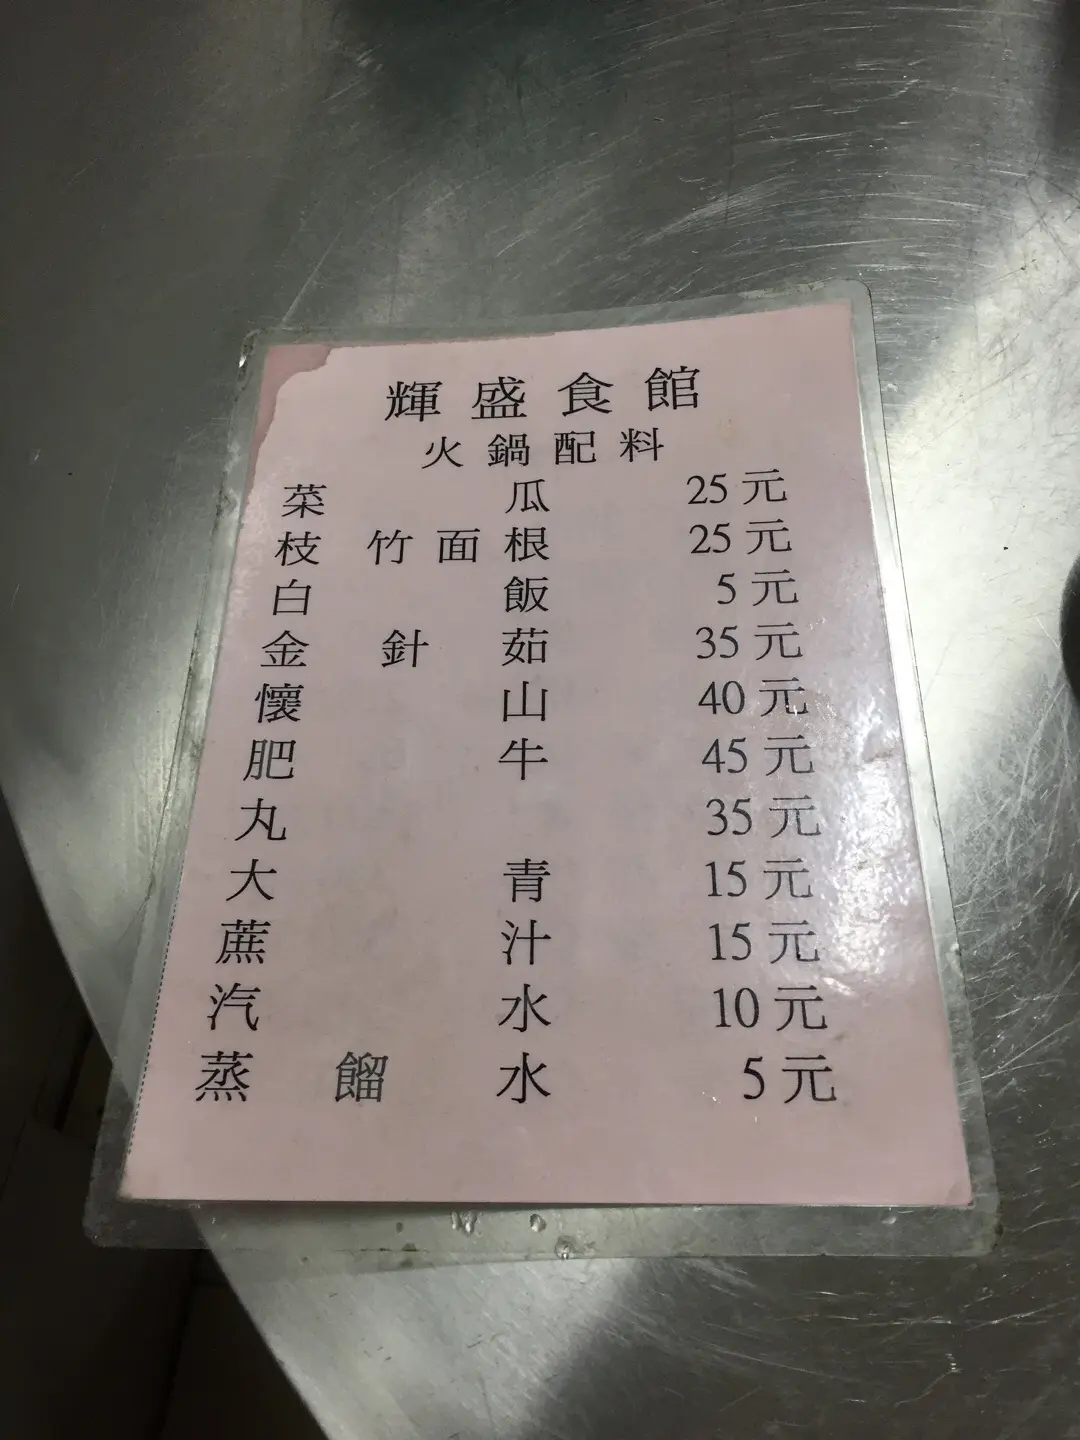 輝盛食館
火鍋配料
菜瓜 25元
枝竹面根 25元
白飯 5元
金針茹 35元
懷山 40元
肥牛 45元
丸 35元
大青 15元
蔗汁 15元
汽水 10元
蒸餾水 5元